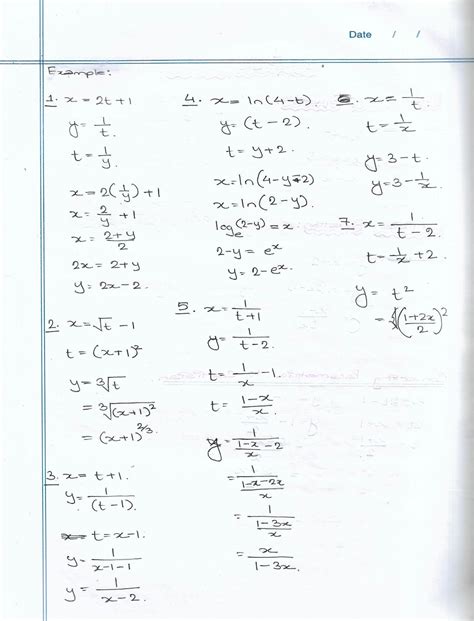 Date / /
Example:
1. x = 2t+1
y = 1/t.
t = 1/y.
x = 2(1/y) + 1
x = 2/y + 1
x = 2+y/2
2x = 2+y
y = 2x-2.
2. x = √t - 1
t = (x+1)²
y = ³√t
= ³√(x+1)²
= (x+1)^2/3.
3. x = t+1.
y = 1/(t-1).
t = x-1.
y = 1/x-1-1
y = 1/x-2.
4. x = ln(4-t).
y = (t-2).
t = y+2.
x = ln(4-y-2)
x = ln(2-y).
log_e(2-y) = x.
2-y = e^x
y = 2-e^x.
5. x = 1/t+1
y = 1/t-2.
t = 1/x - 1.
t = 1-x/x.
y = 1/1-x/x - 2
= 1/1-x-2x/x
= 1/1-3x/x
= x/1-3x.
6. x = 1/t.
t = 1/x
y = 3-t.
y = 3-1/x.
7. x = 1/t-2.
t = 1/x + 2.
y = t²
= (1+2x/2)²